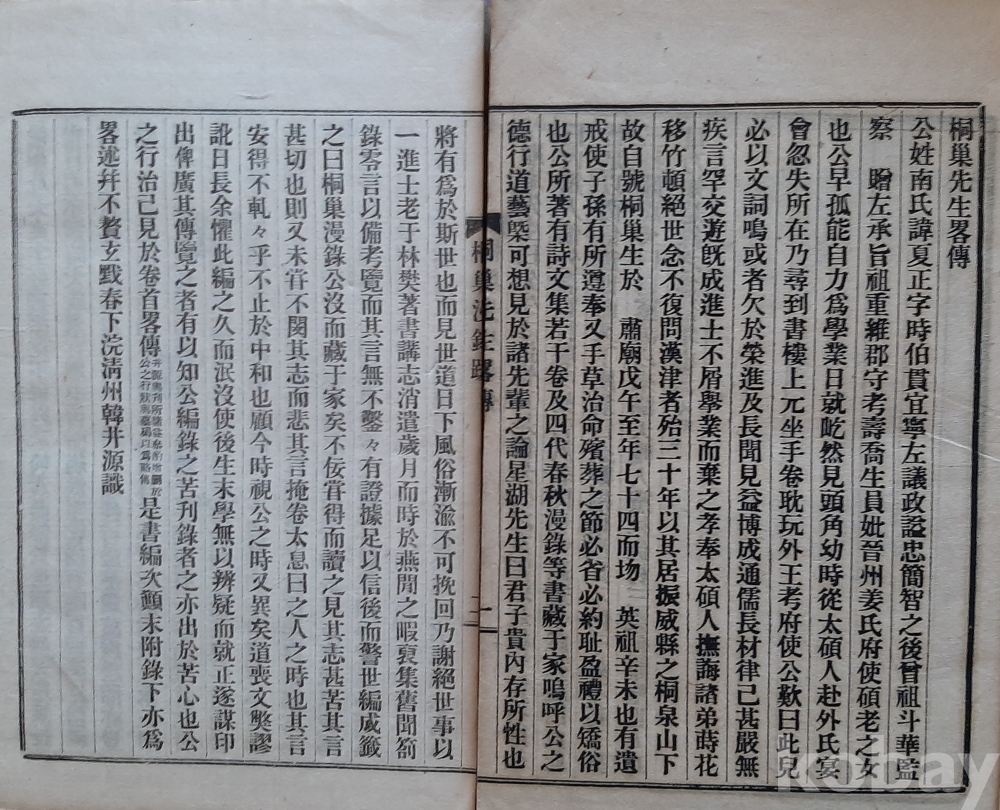 桐巢先生畧傳
公姓南氏諱夏正字時伯貫宜寧左議政諡忠簡智之後曾祖斗華監
察 贈左承旨祖重維郡守考壽喬生員妣晉州姜氏府使碩老之女
也公早孤能自力爲學業日就屹然見頭角幼時從太碩人赴外氏宴
會忽失所在乃尋到書樓上兀坐手卷耽玩外王考府使公歎曰此兒
必以文詞鳴或者欠於榮進及長聞見益博成通儒長材律己甚嚴無
疾言罕交遊旣成進士不屑學業而棄之孝奉太碩人撫誨諸弟蒔花
移竹頓絕世念不復問漢津者殆三十年以其居振威縣之桐泉山下
故自號桐巢生於 肅廟戊午至年七十四而歿 英祖辛未也有遺
戒使子孫有所遵奉又手草治命殯葬之節必省必約耻盈禮以矯俗
也公所著有詩文集若干卷及四代春秋漫錄等書藏于家嗚呼公之
德行道藝槩可想見於諸先輩之論星湖先生曰君子貴內存所性也
桐巢漫錄畧傳
一
將有爲於斯世也而見世道日下風俗漸渝不可挽回乃謝絕世事以
一進士老于林樊著書講志消遣歲月而時於燕閒之暇裒集舊聞箚
錄零言以備考覽而其言無不鑿々有證據足以信後而警世編成籤
之曰桐巢漫錄公沒而藏于家矣不佞甞得而讀之見其志甚苦其言
甚切也則又未甞不閔其志而悲其言掩卷太息曰之人之時也其言
安得不軋々乎不止於中和也顧今時視公之時又異矣道喪文弊謬
訛日長余懼此編之久而泯沒使後生末學無以辨疑而就正遂謀印
出俾廣其傳覽之者有以知公編錄之苦刊錄者之亦出於苦心也公
之行治已見於卷首畧傳 是書編次顚末附錄下亦爲
畧述幷不贅玄黓春下浣淸州韓井源識
kobay